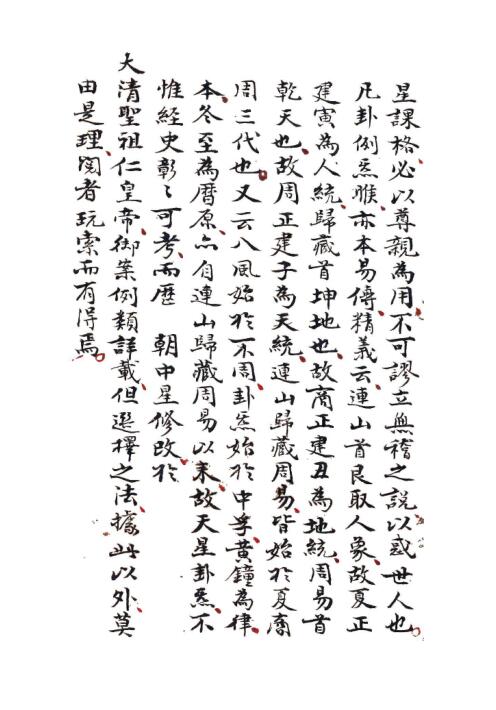 星課格必以尊親為用不可謬立無稽之說以惑世人也
凡卦例炁睺亦本易傳精義云連山首艮取人象故夏正
建寅為人統歸藏首坤地也故商正建丑為地統周易首
乾天也故周正建子為天統連山歸藏周易皆始於夏商
周三代也又云八風始於不周卦炁始於中孚黃鐘為律
本冬至為曆原亦自連山歸藏周易以來故天星卦炁不
惟經史彰〻可考而歷　朝中星修改於
大清聖祖仁皇帝御案例類詳載但選擇之法據此以外莫
由是理閱者玩索而有得焉